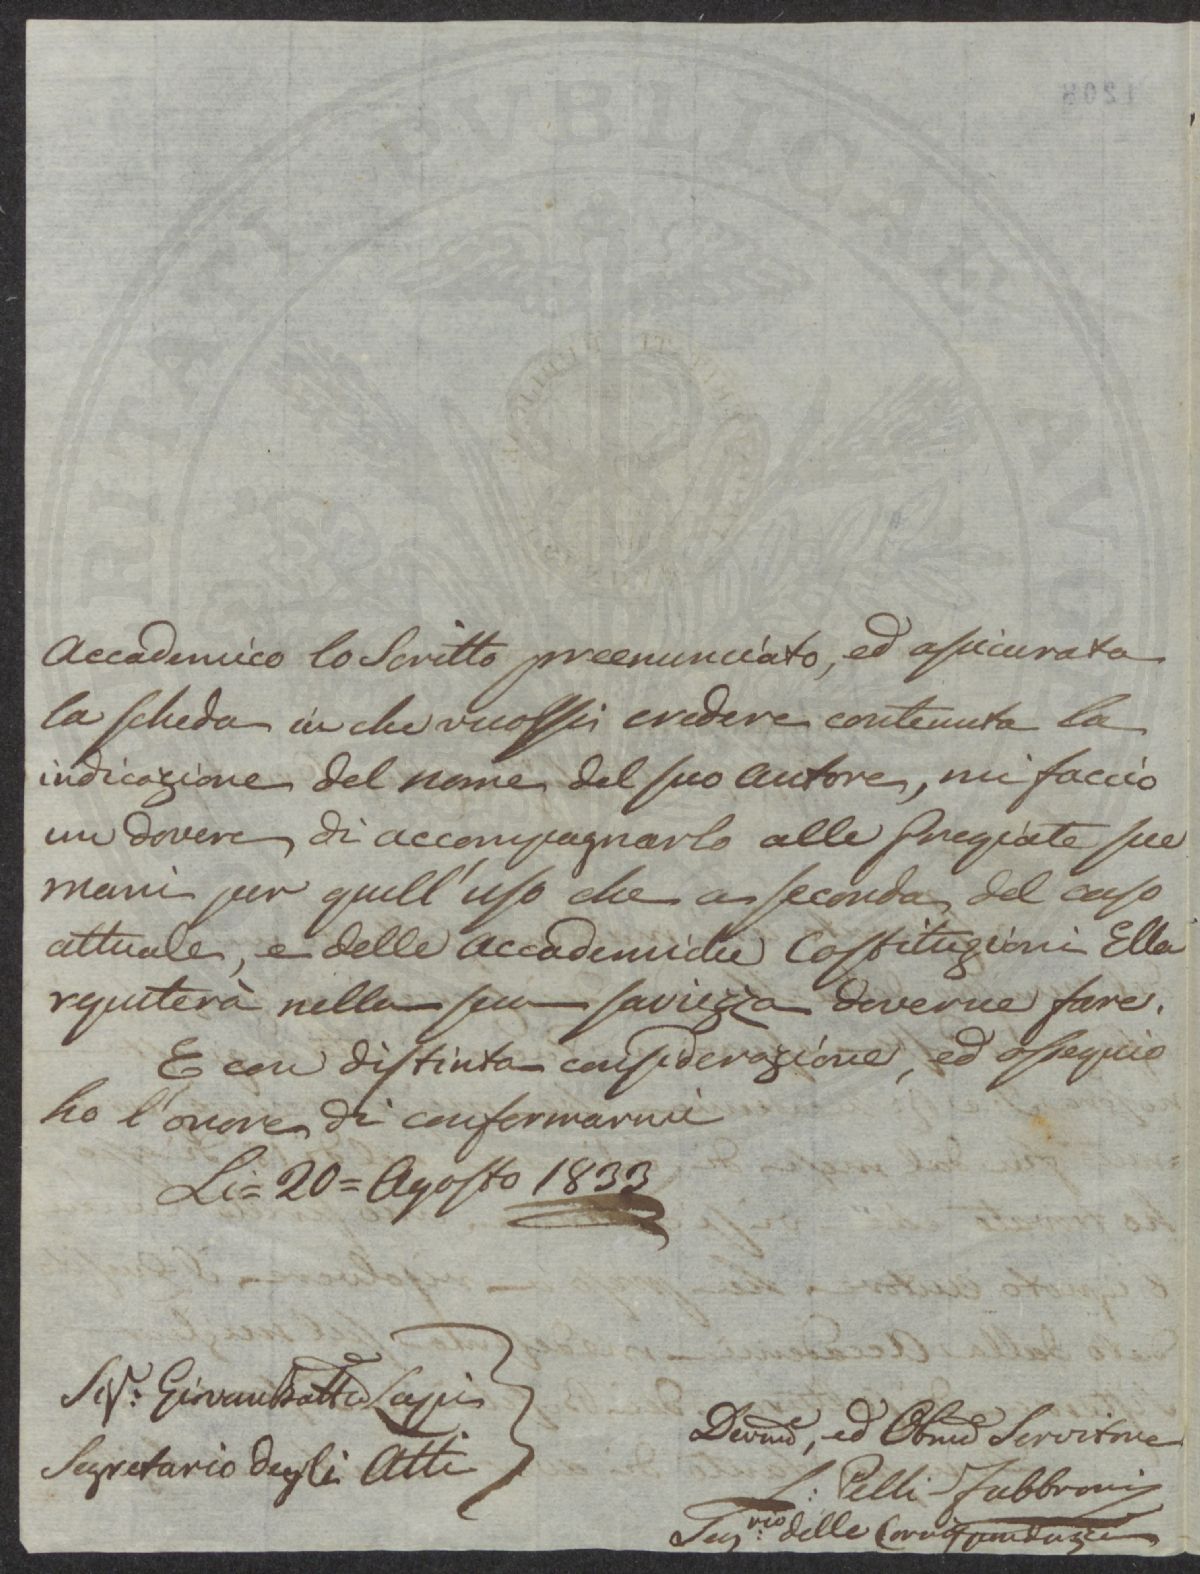 Accademico lo Scritto preenunciato, ed assicurata
la scheda in che vuolsi credere contenuta la
indicazione del nome del suo Autore, mi faccio
un dovere di accompagnarlo alle Pregiate sue
mani per quell'uso che a seconda del caso
attuale, e delle Accademiche Costituzioni Ella
reputerà nella sua saviezza doverne fare.
E con distinta considerazione, ed ossequio
ho l'onore di confermarmi
Li= 20= Agosto 1833
Sigr: Giovanbatta Lapi
Segretario degli Atti
Devmo, ed Obmo Servitore
L: Pelli-Fabbroni
Segrio: delle Corrispondenze